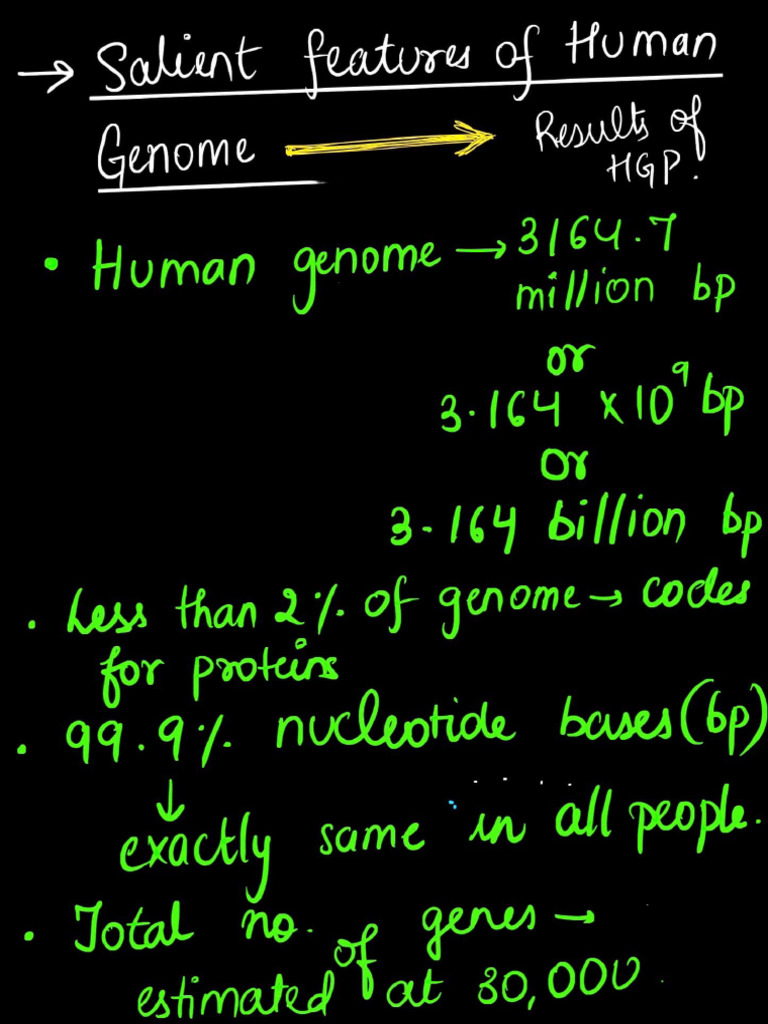 → Salient features of Human
Genome → Results of
HGP.
• Human genome → 3164.7
million bp
or
3.164 x 10⁹ bp
or
3.164 billion bp
• Less than 2% of genome → codes
for proteins
• 99.9% nucleotide bases (bp)
↓
exactly same in all people.
• Total no. of genes →
estimated at 30,000